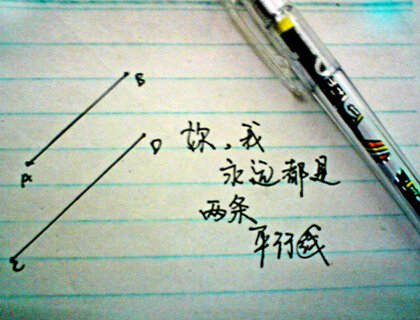 B
A
D
C
妳，我
永远都是
两条
平行线